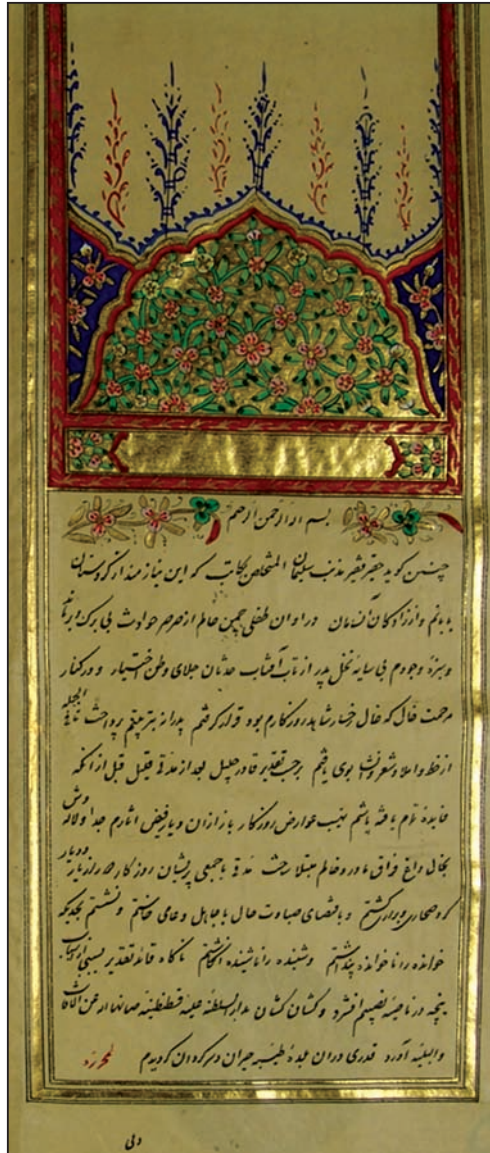 بسم الله الرحمن الرحیم
چنین کوید حقیر فقیر مذنب سلیمان المتخلص بکاتب که این نیازمند از کردستان
بابانم و از زادکان آنسامان در اوان طفلی چمن حالم از صرصر حوادث بی برک و بر ماند
و سبزه وجودم بی سایه نخل پدر از تاب آفتاب حدثان جلای وطن اختیار و در کنار
مرحمت خال که خال رخسار شاهد روزکارم بود قرار کرفتم پدرانه بتربیتم پرداخت تا فی الجمله
از خط و املاء و شعر و انشا بویی یافتم بر حسب تقدیر قادر جلیل بعد از مدة قلیل قبل از انکه
فایده تام یافته باشم نهیب عوارض روزکار باز از ان دیار فیض آثارم جدا و لاله وش
بخال داغ فراق مادر و خالم مبتلا ساخت مدة با جمعی پریشان روزکار در هر دیار و دیار
کرد صحاری و براری کشتم و باقتضای صباوت حال با جاهل و عامی خاستم و نشستم بحدیکه
خوانده را ناخوانده پنداشتم و شنیده را ناشنیده انکاشتم ناکاه قائد تقدیر بسببی از اسباب
پنجه در ناصیه نصیبم افشرد و کشان کشان بدار السلطنه علیه قسطنطنیه صانها الله عن الآفات
والبلیه آورد قدری در ان بلدهٔ طیبه حیران و سرکردان کردیدم لمحرره
دلی